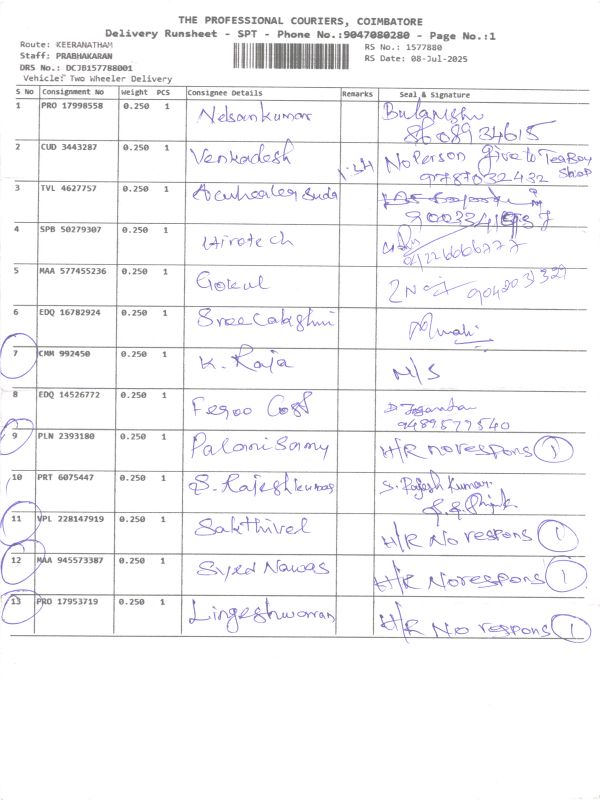 THE PROFESSIONAL COURIERS, COIMBATORE
Delivery Runsheet - SPT - Phone No.:9047080280 - Page No.:1
Route: KEERANATHAM
RS No.: 1577880
Staff: PRABHAKARAN
RS Date: 08-Jul-2025
DRS No.: DCJB157788001
Vehicle: Two Wheeler Delivery
S No Consignment No Weight PCS Consignee Details Remarks Seal & Signature
1 PRO 17998558 0.250 1 Nelsankumar
8608934615
2 CUD 3443287 0.250 1 Venkadesh No Person give to Tea Boy
Shop
9787032432
3 TVL 4627757 0.250 1
4 SPB 50279307 0.250 1 Hirotech
5 MAA 577455236 0.250 1 Gokul
6 EDQ 16782924 0.250 1
7 CMM 992450 0.250 1 K. Raja N/S
8 EDQ 14526772 0.250 1
9489577540
9 PLN 2393180 0.250 1 Palanisamy H/R no respons 1
10 PRT 6075447 0.250 1 S. Rajeshkumar S. Rajesh Kumar
11 VPL 228147919 0.250 1 Sakthivel H/R No respons 1
12 MAA 945573387 0.250 1 Syed Nawas H/R No respons 1
13 PRO 17953719 0.250 1 Lingeshwaran H/R No respons 1